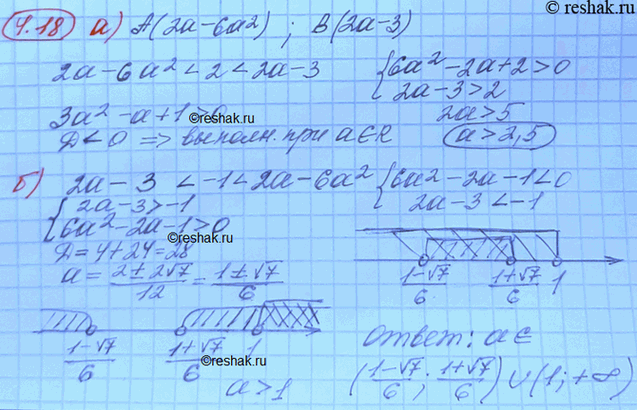 reshak.ru
4.18 а) A(2a-6a²) ; B(2a-3)
2a-6a² < 2 < 2a-3 { 6a²-2a+2>0
2a-3>2
3a²-a+1>0 2a>5
D<0 => выполн. при a∈R a>2,5
б) 2a-3 < -1 < 2a-6a² { 6a²-2a-1<0
{ 2a-3>-1 2a-3<-1
6a²-2a-1>0
reshak.ru
D=4+24=28
a = (2±2√7)/12 = (1±√7)/6
(1-√7)/6 (1+√7)/6 1
(1-√7)/6 (1+√7)/6 1
reshak.ru
a>1
ответ: a∈
((1-√7)/6; (1+√7)/6) ∪ (1; +∞)
reshak.ru